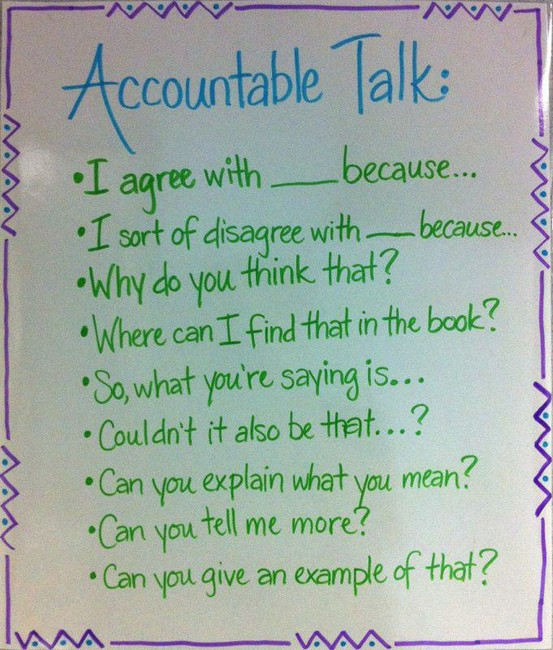 Accountable Talk:
•I agree with ____ because...
•I sort of disagree with ____ because...
•Why do you think that?
•Where can I find that in the book?
•So, what you're saying is...
•Couldn't it also be that...?
•Can you explain what you mean?
•Can you tell me more?
•Can you give an example of that?